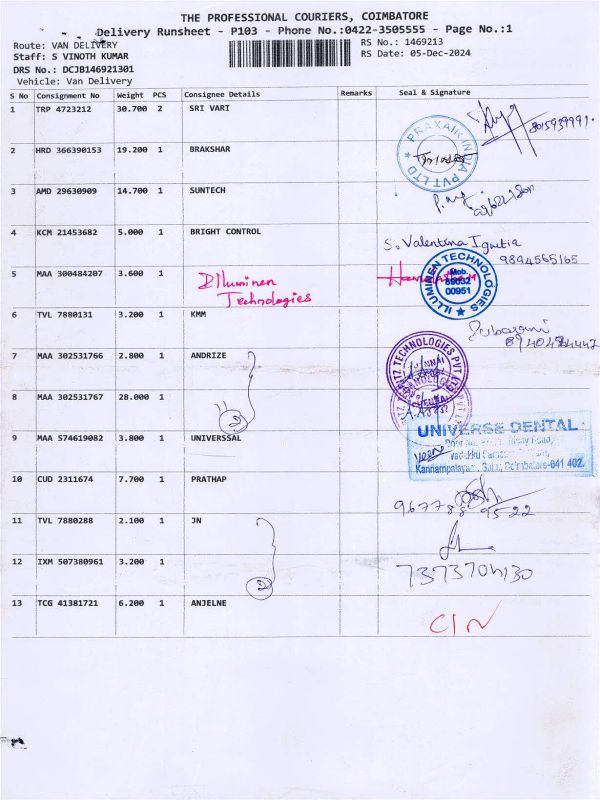 THE PROFESSIONAL COURIERS, COIMBATORE
Delivery Runsheet - P103 - Phone No.:0422-3505555 - Page No.:1
Route: VAN DELIVERY
RS No.: 1469213
Staff: S VINOTH KUMAR
RS Date: 05-Dec-2024
DRS No.: DCJB146921301
Vehicle: Van Delivery
S No Consignment No Weight PCS Consignee Details Remarks Seal & Signature
1 TRP 4723212 30.700 2 SRI VARI
8015939991.
PRAXAIR INDIA PVT LTD
2 HRD 366390153 19.200 1 BRAKSHAR
3 AMD 29630909 14.700 1 SUNTECH
4 KCM 21453682 5.000 1 BRIGHT CONTROL
S. Valentina
9894565165
5 MAA 300484207 3.600 1 Illuminen
Technologies
ILLUMINEN TECHNOLOGIES
Mob.
89032
00951
6 TVL 7880131 3.200 1 KMM
7 MAA 302531766 2.800 1 ANDRIZE
TECHNOLOGIES PVT LTD
CHENNAI
8 MAA 302531767 28.000 1
2
UNIVERSE DENTAL
9 MAA 574619082 3.800 1 UNIVERSSAL
Kannampalayam, Sulur, Coimbatore-641 402.
10 CUD 2311674 7.700 1 PRATHAP
967788 9522
11 TVL 7880288 2.100 1 JN
12 IXM 507380961 3.200 1
2
13 TCG 41381721 6.200 1 ANJELNE